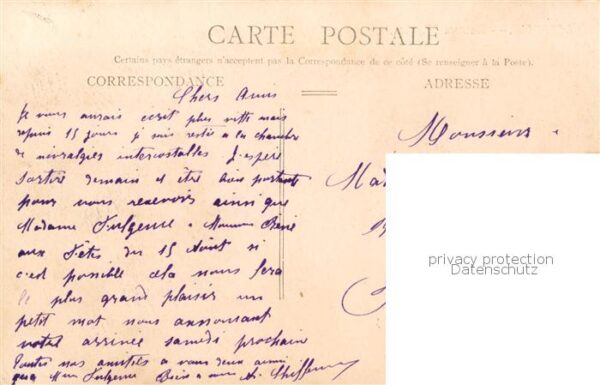 CARTE POSTALE
Certains pays étrangers n'acceptent pas la Correspondance de ce côté (Se renseigner à la Poste).
CORRESPONDANCE
ADRESSE
Chers Amis
Je vous aurais ecrit plus vitte mais
depuis 15 jours je suis resté a la chambre
de nivralgies intercostalles J espère
Sortire demain et être bien portante
pour vous recevoir ainsi que
Madame Fulgence & Monsieur René
aux Fêtes du 15 Août si
c'est possible cela nous fera
le plus grand plaisir un
petit mot nous annoncant
votre arrivée samedi prochain
Toutes nos amitiés a vous deux ainsi
que Mme Fulgence
Monsieur
privacy protection
Datenschutz